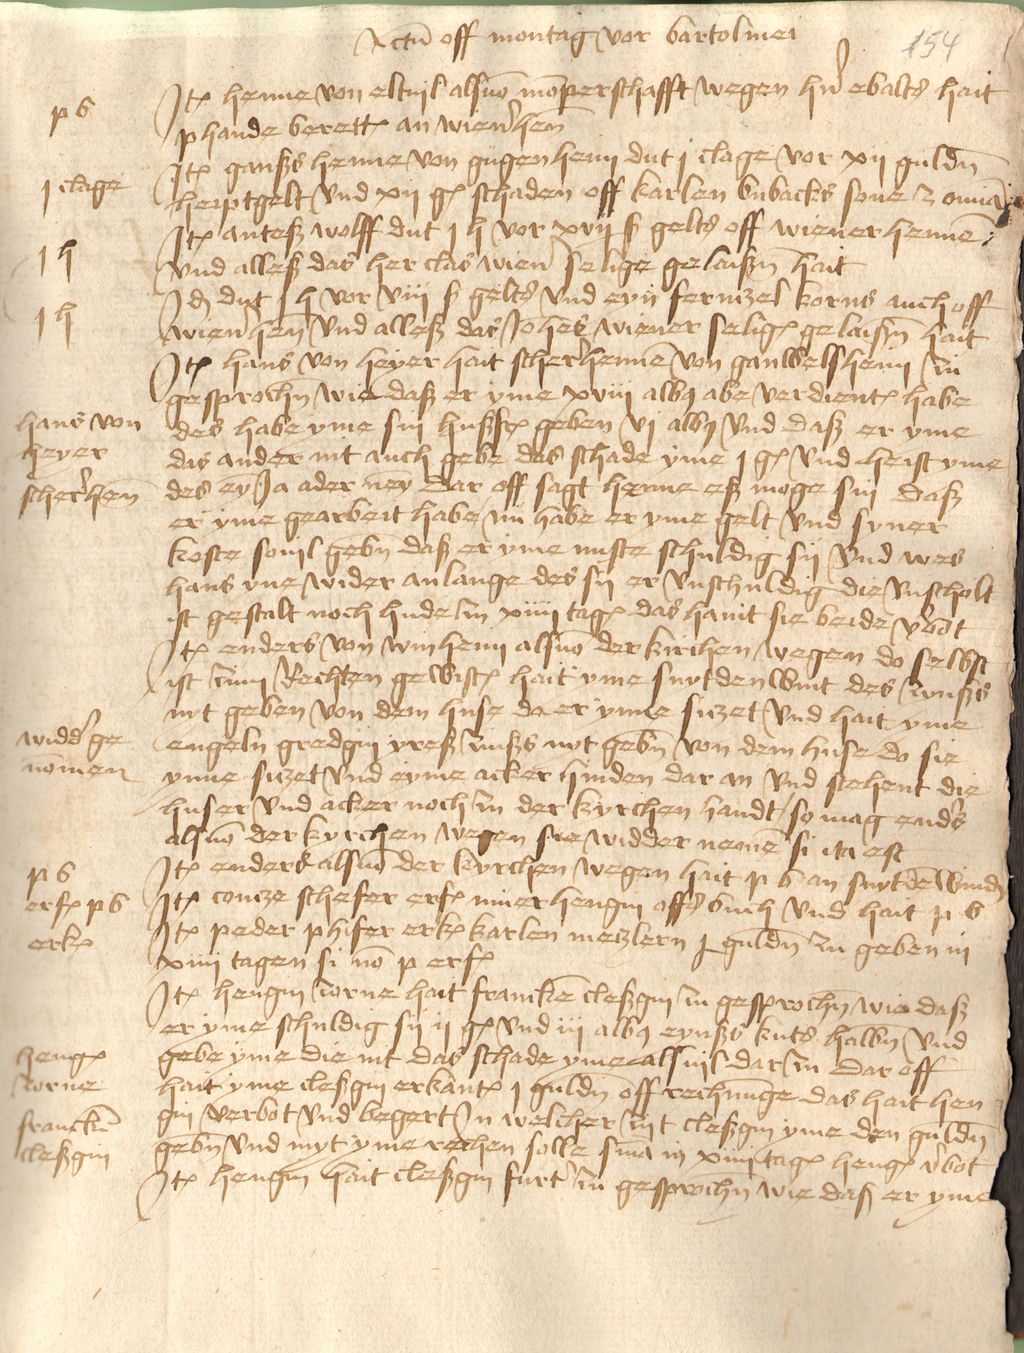 Actu͂ off montag vor bartolmei
154
p b
Jtꝫ henne von eltuil alsuo͂ mo͂perschafft wegen hn͂ ebalts hait
phande berettꝫ an wien͛hen͂
1 clage
Jtꝫ ganßs henne von gugenheim dut j clage vor xij guld͂n
heiptgelt vnd xij gꝫ schaden off karlen bubacks sone
1 h
Jtꝫ anteß wolff dut j h vor xvij ß gelts off wienerhenne͂
vnd alleß das her clas wien͛ selige gelaißn͂ hait
1 h
Jd͂ dut j h vor viij ß gelts vnd eyn ferntzel korns auch off
wien͛hen͂ vnd alleß das Johes wiener seligꝫ gelaißn͂ hait
hans von
heyer
scher͛hen͂
Jtꝫ hans von heyer hait scher͛henne͂ von gauwelßheim zu
gesprochn͂ wie daß er yme xviij albꝯ abe verdientꝫ habe
des habe yme sin hußfrꝫ geben vj albꝯ vnd daß er yme
das ander nit auch gebe das schade yme j gꝫ vnd heist yme
des ey Ja ader ney͂ Dar off sagt henne eß moge sin daß
er yme gearbeit habe nu habe er yme gelt vnd syner
koste souil gebn͂ daß er yme niste schuldig sij vnd wes
hans yne wider anlange des sij er vnschuldig die vnscholt
ist gestalt noch hude zu͂ xiiij tagꝫ das haint sie beide v͛bot
Jtꝫ enders von winheim alsuo͂ der kirchen wegen do selbst
ist zum Rechten gewistꝫ hait yme snytdenwint des zinßs
nyt geben von dem huse da er ynne sitzet vnd hait yme
widd͛ ge
nomen
engeln gredgin yreß zinßs nyt gebn͂ von dem huse do sie
ynne sitzet vnd eyme acker hinden dar an vnd stehent die
huser vnd acker noch zu͂ der kyrchen handt so mag end͛s
alsuo͂ der kyrchen wegen sie widder neme͂ si ita est
p b
Jtꝫ enders alsuo͂ der kyrchen wegen hait p b an snytde͂wind͂
erfꝫ p b
Jtꝫ contze schefer erfꝫ mner hengin offs buch vnd hait p b
erkꝫ
Jtꝫ peder phifer erkꝫ karlen metzlern j guld͂n zu geben in
xiiij tagen si no͂ p erfꝫ
hengꝫ
zorne
francke͂
cleßgin
Jtꝫ hengin zorne hait francke͂ cleßgin zu gesprochn͂ wie daß
er yme schuldig sij ij gꝫ vnd iij albꝯ eynßs kuts halbn͂ vnd
gebe yme die nit das schade yme alsuil dar zu͂ Dar off
hait yme cleßgin erkantꝫ j guld͂n off rechnu͂nge das hait hen
gin verbot vnd begert Jn welcher zijt cleßgin yme den guld͂n
gebn͂ vnd myt yme rechen solle s͂nia in xiiij tagꝫ hengꝫ v͛bot
Jtꝫ hengin hait cleßgin furt͛ zu gesprochn͂ wie daß er yme